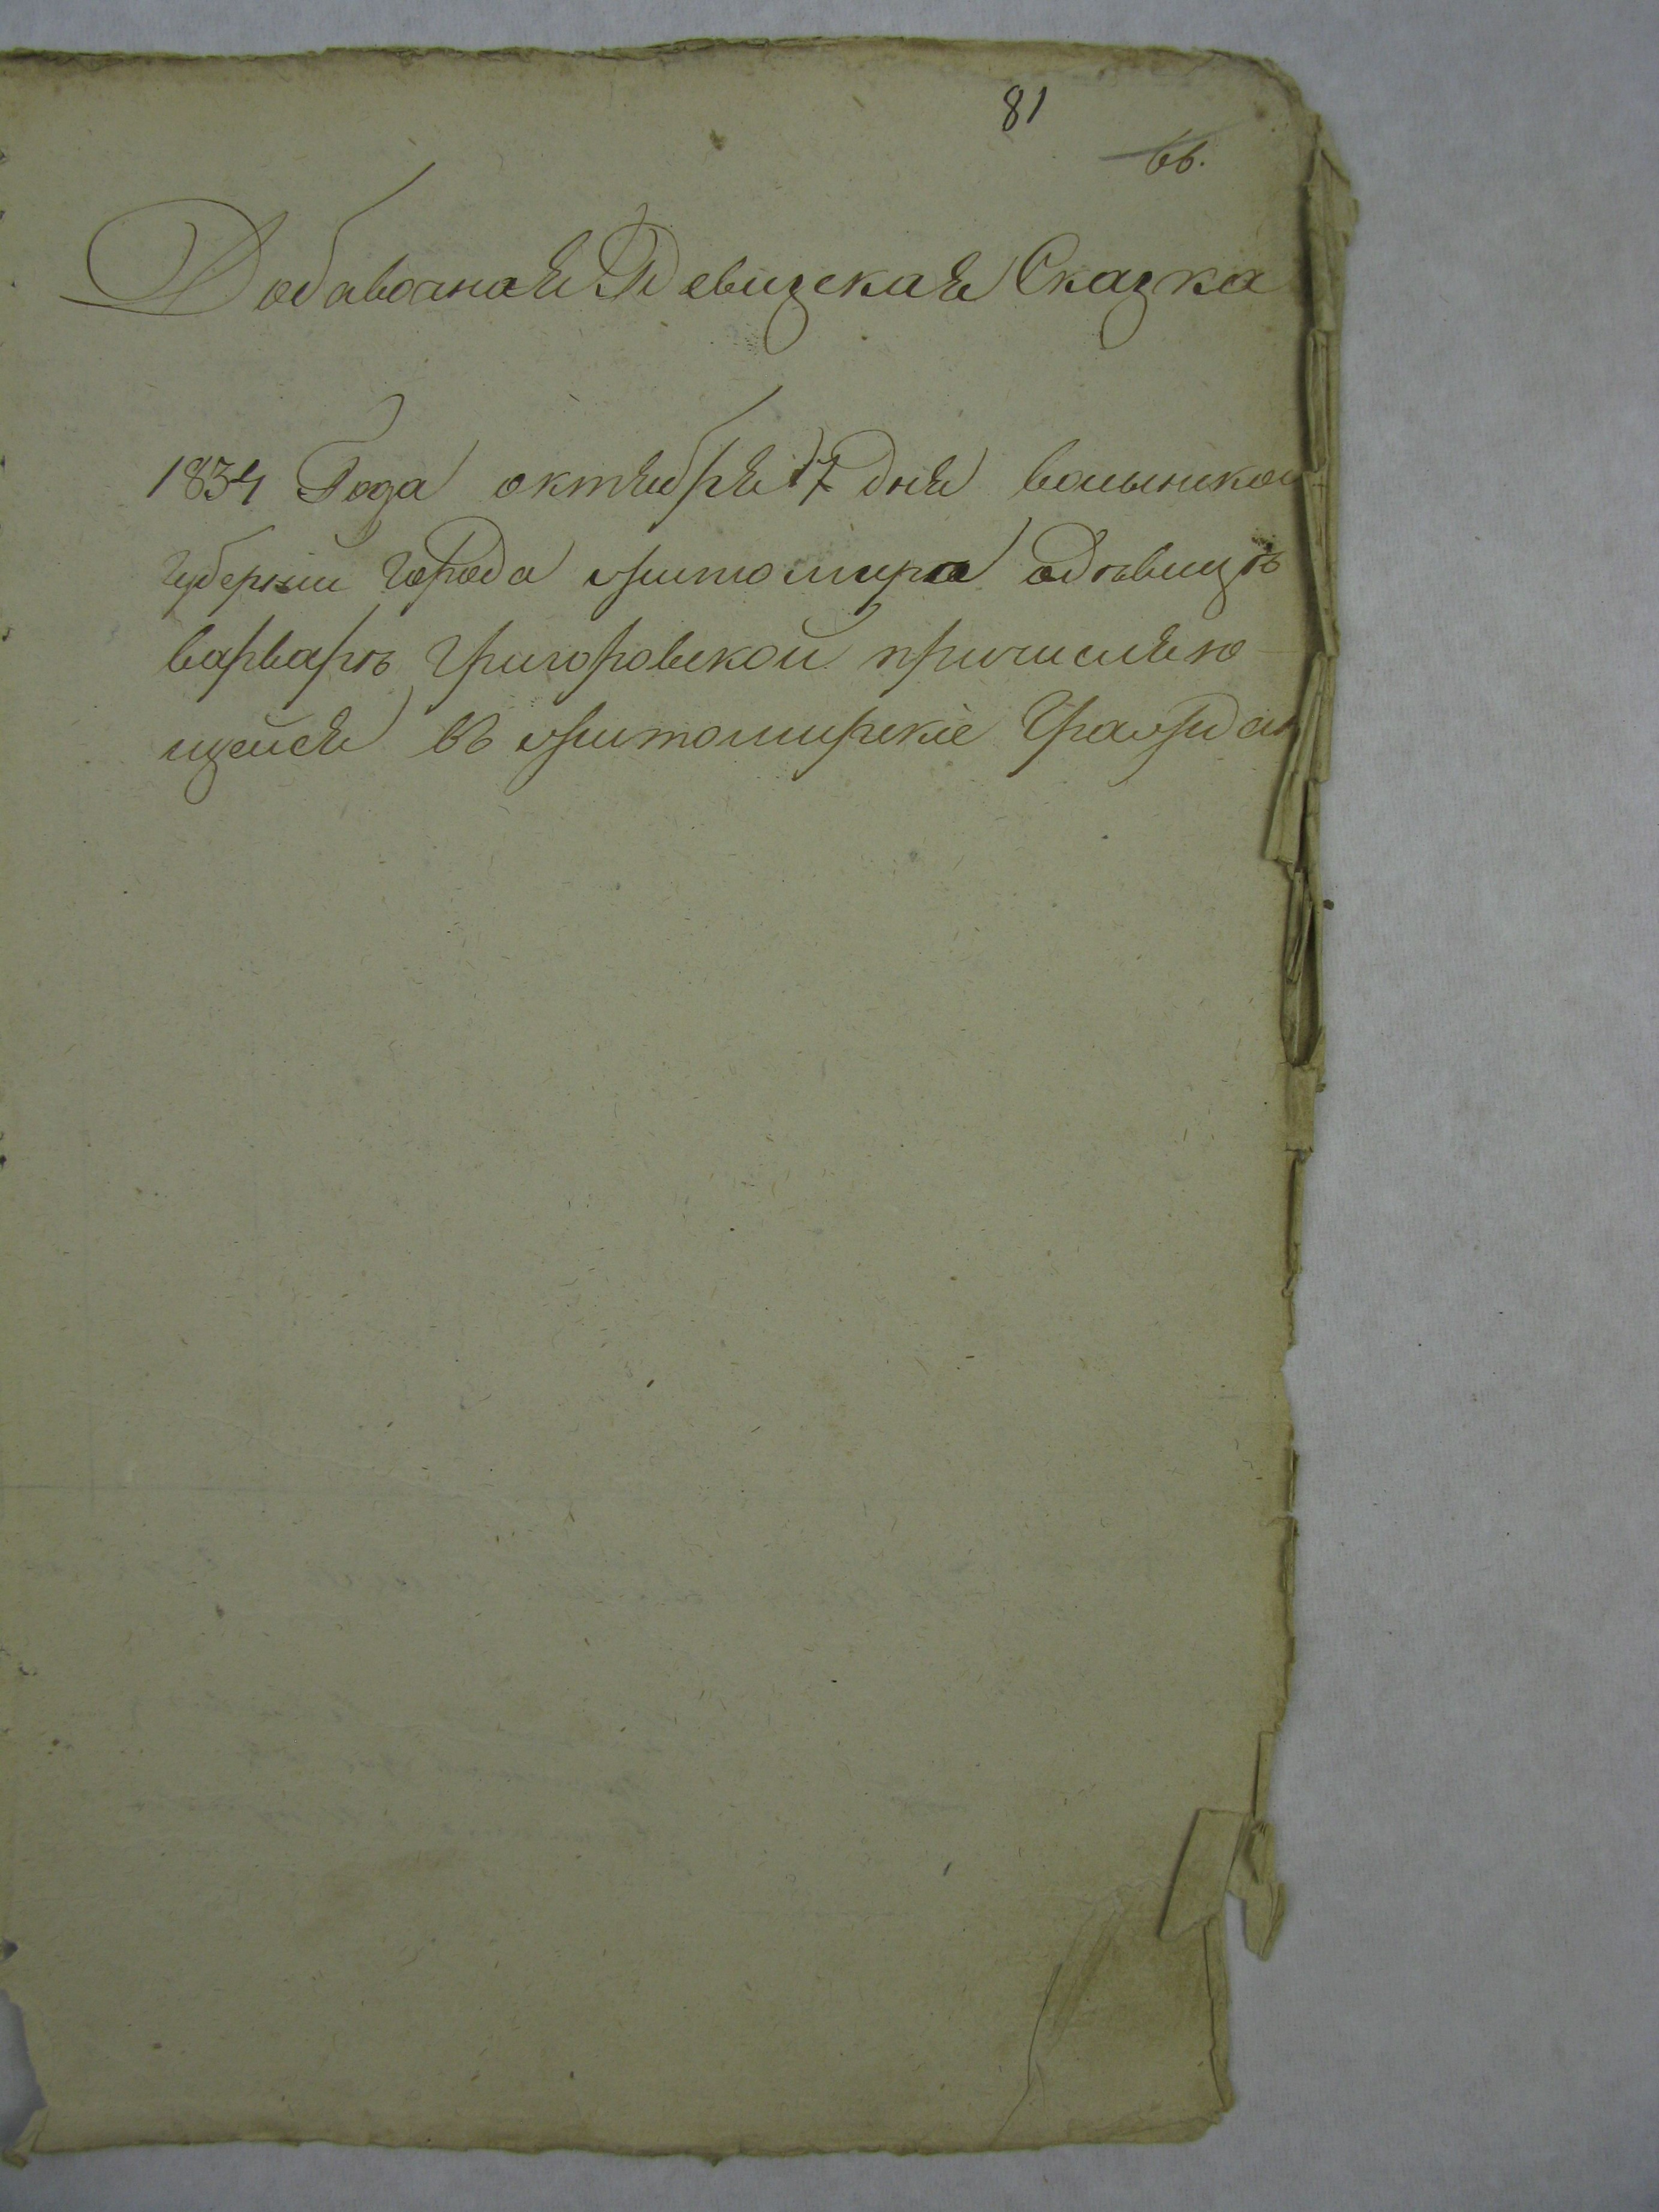 81
66.
Добавочная Ревизская Сказка
1834 Года октября 17 дня волынской
губернии города житомира о дѣвицѣ
варварѣ Григоровской причисляю-
щейся въ житомирскіе Граждан